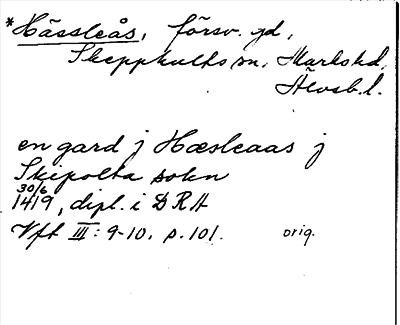 *Hässleås, försv. gd,
Skepphults sn, Marks hd,
Älvsb. l.
en gard j Hæsleaas j
Skipolta sokn
30/6
1419, dipl. i DRA
Vft III: 9-10, p. 101. orig.